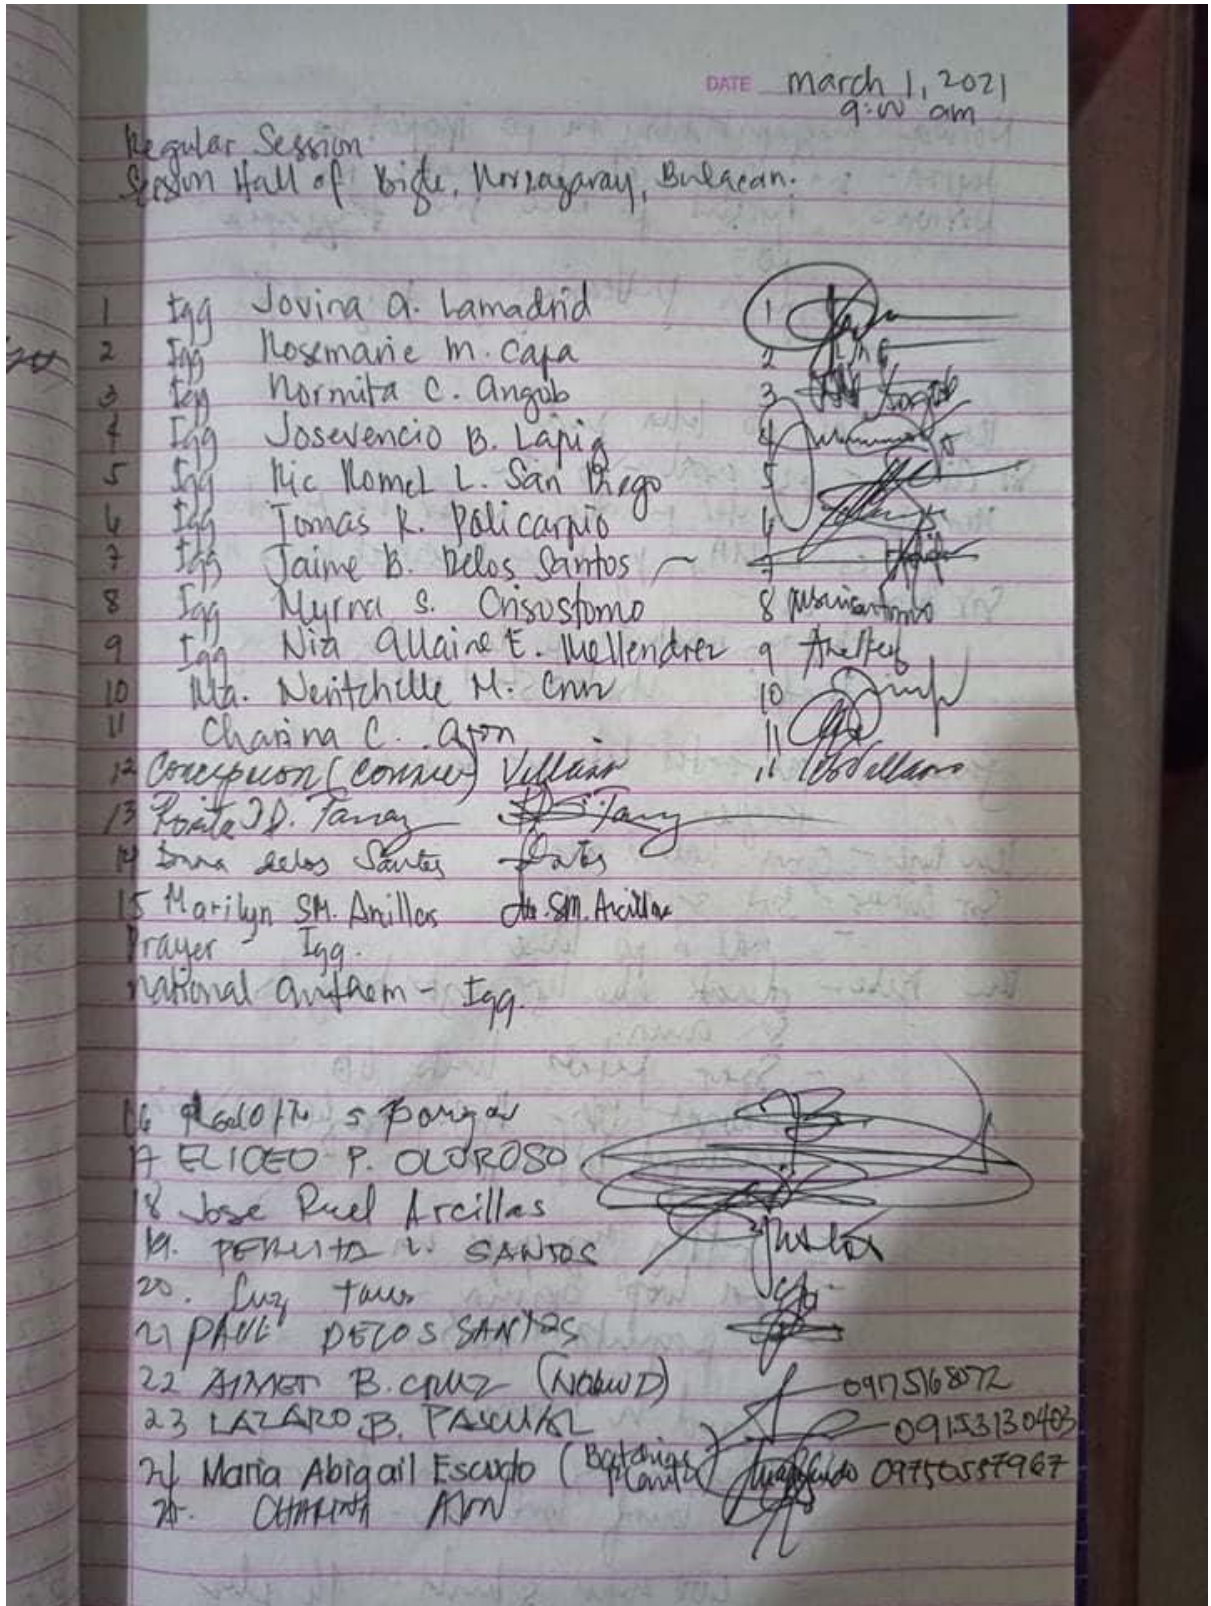 DATE March 1, 2021
9:00 am
Regular Session
Session Hall of Bigte, Norzagaray, Bulacan.
1 Igg Jovina A. Lamadrid 1
2 Igg Rosemarie M. Capa 2
3 Igg Normita C. Angub 3
4 Igg Josevencio B. Lapig 4
5 Igg Ric Romel L. San Diego 5
6 Igg Tomas R. Policarpio 6
7 Igg Jaime B. Delos Santos 7
8 Igg Myrna S. Crisostomo 8
9 Igg Nia Allaine E. Mellendrez 9
10 Ma. Neritchille M. Cruz 10
11 Charina C. Ajon 11
12 Concepcion (Connie) Villano 11
13 Rosita JD.
14 delos Santos
15 Marilyn SM. Arcillas SM. Arcillas
Prayer - Igg.
National Anthem - Igg.
16 Rodolfo S
17 ELICEO P. OLOROSO
18 Jose Ruel Arcillas
19. PERLITA L. SANTOS
20. Luz
21 PAUL DELOS SANTOS
22 B. CRUZ 09175168072
23 LAZARO B. PASCUAL 09153130403
24 Maria Abigail Escudo (Batching Plant) 09750537967
25. CHARINA AJON